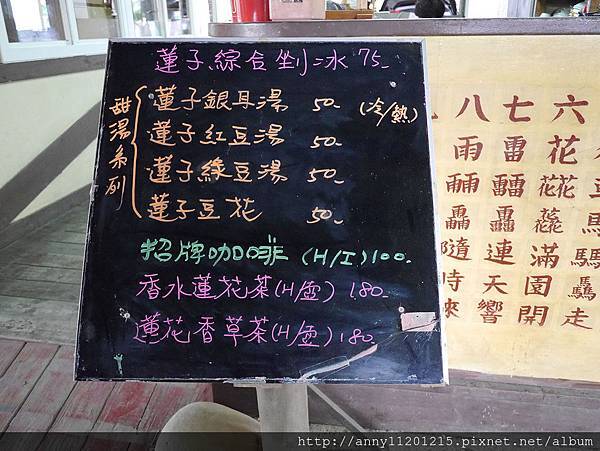 蓮子綜合剉冰 75.
甜湯系列
蓮子銀耳湯 50. (冷/熱)
蓮子紅豆湯 50.
蓮子綠豆湯 50.
蓮子豆花 50.
招牌咖啡 (H/I) 100.
香水蓮花茶(H/壺) 180.
蓮花香草茶(H/壺) 180.
八 七 六
雨 雷 花
隨 連 滿
時 天 園
來 響 開 走
http://anny11201215.pixnet.net/album